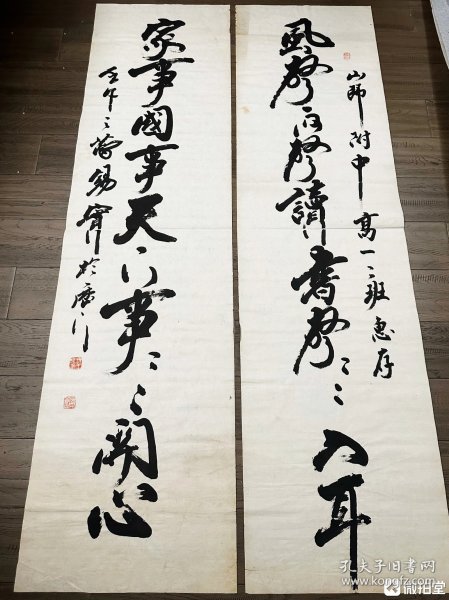 山師附中高一二班惠存
風聲雨聲讀書聲々々入耳
家事國事天下事々々關心
壬午之錫寧於
孔夫子旧书网
www.kongfz.com
微拍堂